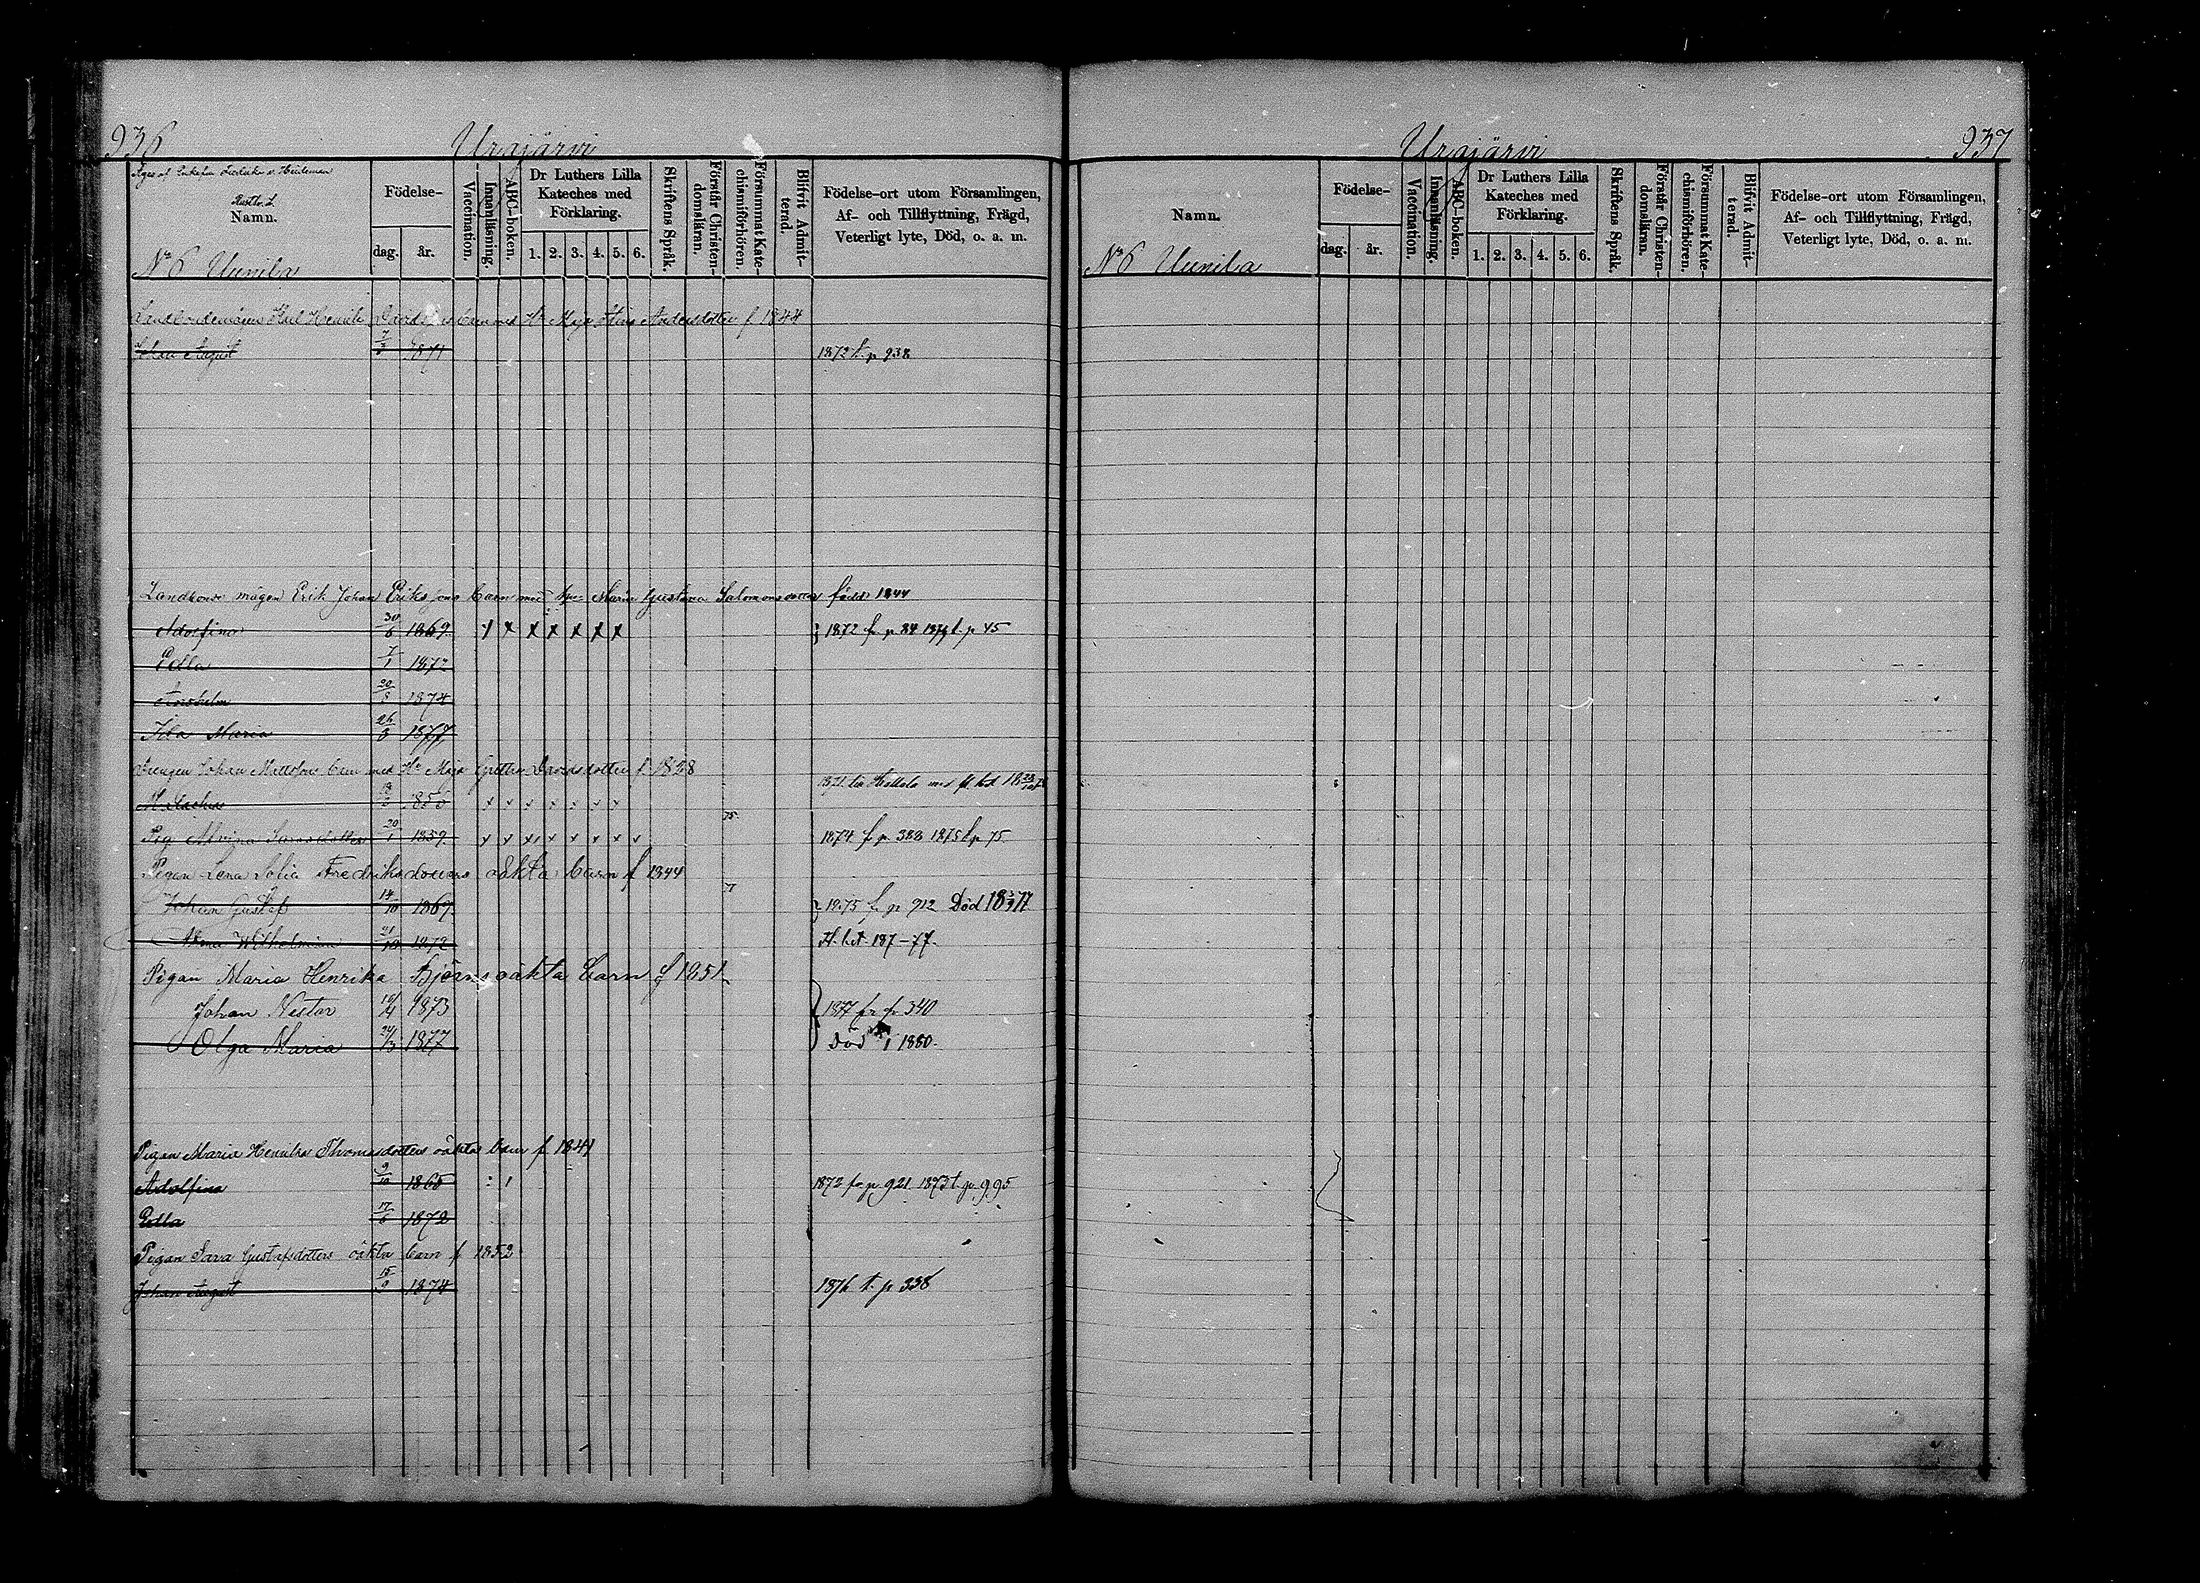 936 Urajärvi
Rusth. 2.
Namn.
Födelse-
dag. år.
Vaccination.
Innanläsning.
ABC-boken.
Dr Luthers Lilla Kateches med Förklaring.
1. 2. 3. 4. 5. 6.
Skriftens Språk.
Förstår Christendomsläran.
Försummat Katechismiförhören.
Blifvit Admitterad.
Födelse-ort utom Församlingen,
Af- och Tillflyttning, Frägd,
Veterligt lyte, Död, o. a. m.
No 6 Uunila
Karl Henrik Davids barn med Hu Maja Stina Andersdotter f 1844
Johan August 7/3 1871 1872 t. p 938
Landbonde mågen Erik Johan Erikssons barn med hu Maria Gustava Salomonsdotter född 1844
Adolfina 30/6 1869 x x x x x x x } 1872 f. p 84 1879 t. p 45
Edla 7/1 1872
Anshelm 20/8 1874
Ida Maria 26/3 1877
Drengen Johan Mattsons barn med Hu Maja Greta Davidsdotter f. 1828
1856 x x x x x x x 1871 till Hollola med
20/1 1859 x x x x x x x x 75 1874 f. p 388 1875 t. p 75
Pigan Lena Sofia Fredriksdotters oäkta barn f 1844
Johan Gustaf 14/10 1869 } 1875 f. p 912 Död 1877
Alma Wilhelmina 21/10 1872 H. b. A 187-77.
Pigan Maria Henrika Björns oäkta barn f 1851
Johan Nestor 19/4 1873 } 1877 fr p 340
Olga Maria 24/3 1877 Död 1 1880.
Pigan Maria Henrika Thomasdotters oäkta barn f 1841
Adolfina 9/10 1865 1872 fr p 921 1873 t. p. 995
Edla 17/6 1872
Pigan Sara Gustafsdotters oäkta barn f 1852
Johan August 15/9 1874 1876 t. p 338
Urajärvi 937
Namn.
Födelse-
dag. år.
Vaccination.
Innanläsning.
ABC-boken.
Dr Luthers Lilla Kateches med Förklaring.
1. 2. 3. 4. 5. 6.
Skriftens Språk.
Förstår Christendomsläran.
Försummat Katechismiförhören.
Blifvit Admitterad.
Födelse-ort utom Församlingen,
Af- och Tillflyttning, Frägd,
Veterligt lyte, Död, o. a. m.
No 6 Uunila